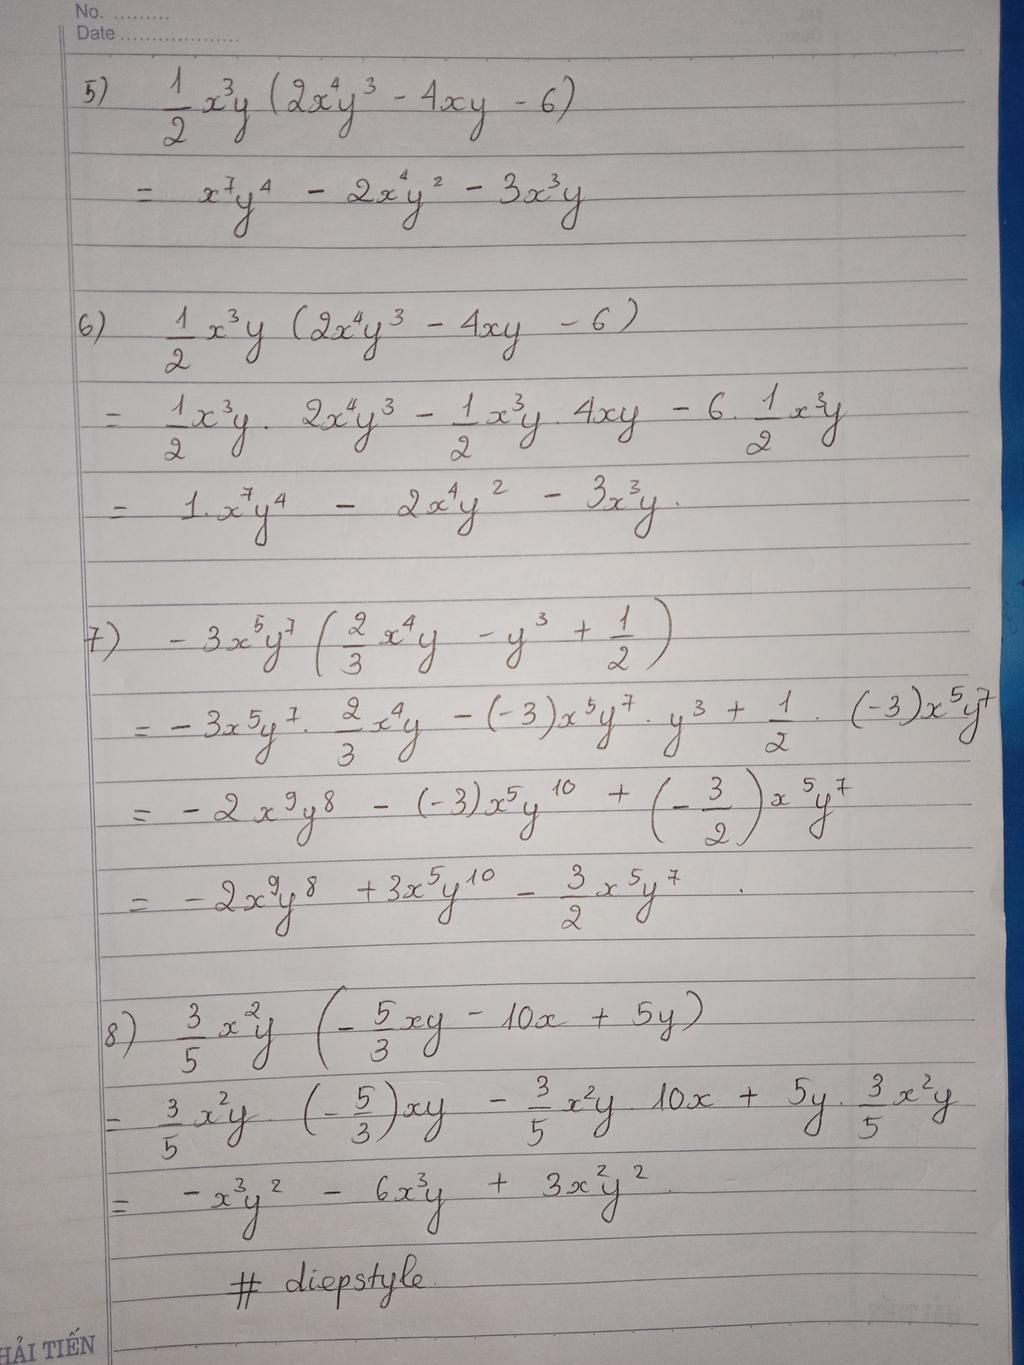 No. .........
Date ...................
5) 1/2 x³y (2x⁴y³ - 4xy - 6)
= x⁷y⁴ - 2x⁴y² - 3x³y
6) 1/2 x³y (2x⁴y³ - 4xy - 6)
= 1/2 x³y . 2x⁴y³ - 1/2 x³y . 4xy - 6 . 1/2 x³y
= 1.x⁷y⁴ - 2x⁴y² - 3x³y.
7) - 3x⁵y⁷ (2/3 x⁴y - y³ + 1/2)
= - 3x⁵y⁷ . 2/3 x⁴y - (-3)x⁵y⁷ . y³ + 1/2 . (-3)x⁵y⁷
= - 2x⁹y⁸ - (-3)x⁵y¹⁰ + (- 3/2) x⁵y⁷
= - 2x⁹y⁸ + 3x⁵y¹⁰ - 3/2 x⁵y⁷ .
8) 3/5 x²y (- 5/3 xy - 10x + 5y)
= 3/5 x²y . (- 5/3)xy - 3/5 x²y . 10x + 5y . 3/5 x²y
= - x³y² - 6x³y + 3x²y².
# diepstyle
HẢI TIẾN